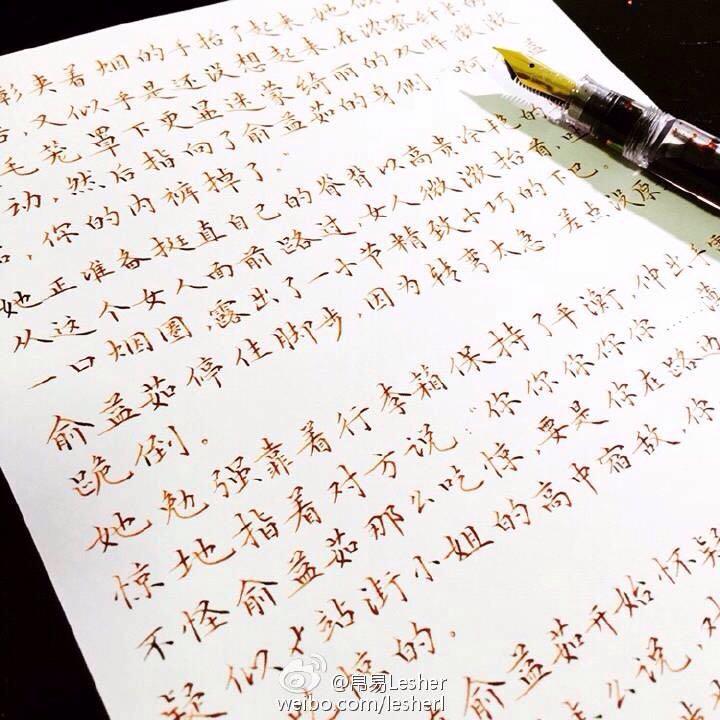 彰夹着烟的手抬了起来
后,又似乎是还没想起来,在浓密
毛笼罩下更显迷蒙绮丽的双眸微微
动,然后指向了俞益茹的身侧:啊,
后,你的内裤掉了。
她正准备挺直自己的脊背以高贵冷艳的
从这个女人面前路过,女人微微抬首,
一口烟圈,露出了一小节精致小巧的下巴。
俞益茹停住脚步,因为转弯太急,差点没
跪倒。
她勉强靠着行李箱保持了平衡,伸出手
惊地指着对方说:“你你你你你……
不怪俞益茹那么吃惊,要是你在路边
疑似大站街小姐的高中宿敌,你
惊的。
俞益茹开始怀疑
么说,对
@帛易Lesher
weibo.com/lesherl